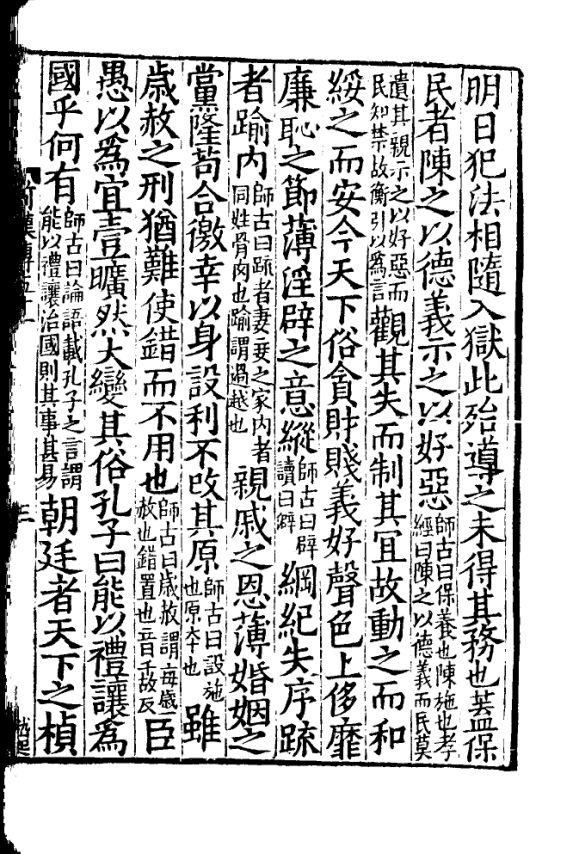 明日犯法相隨入獄此殆導之未得其務也蓋保
民者陳之以德義示之以好惡師古曰保養也陳施也孝經曰陳之以德義而民莫
遺其親示之以好惡而民知禁故衡引以爲言觀其失而制其冝故動之而和
綏之而安今天下俗貪財賤義好聲色上侈靡
廉恥之節薄淫辟之意縱師古曰辟讀曰僻綱紀失序疏
者踰内師古曰疏者妻妾之家内者同姓骨肉也踰謂過越也親戚之恩薄婚姻之
黨隆苟合徼幸以身設利不改其原師古曰設施也原本也雖
歳赦之刑猶難使錯而不用也師古曰歳赦謂每歳赦也錯置也音千故反臣
愚以爲宜壹曠然大變其俗孔子曰能以禮讓爲
國乎何有師古曰論語載孔子之言謂能以禮讓治國則其事甚易朝廷者天下之楨
三